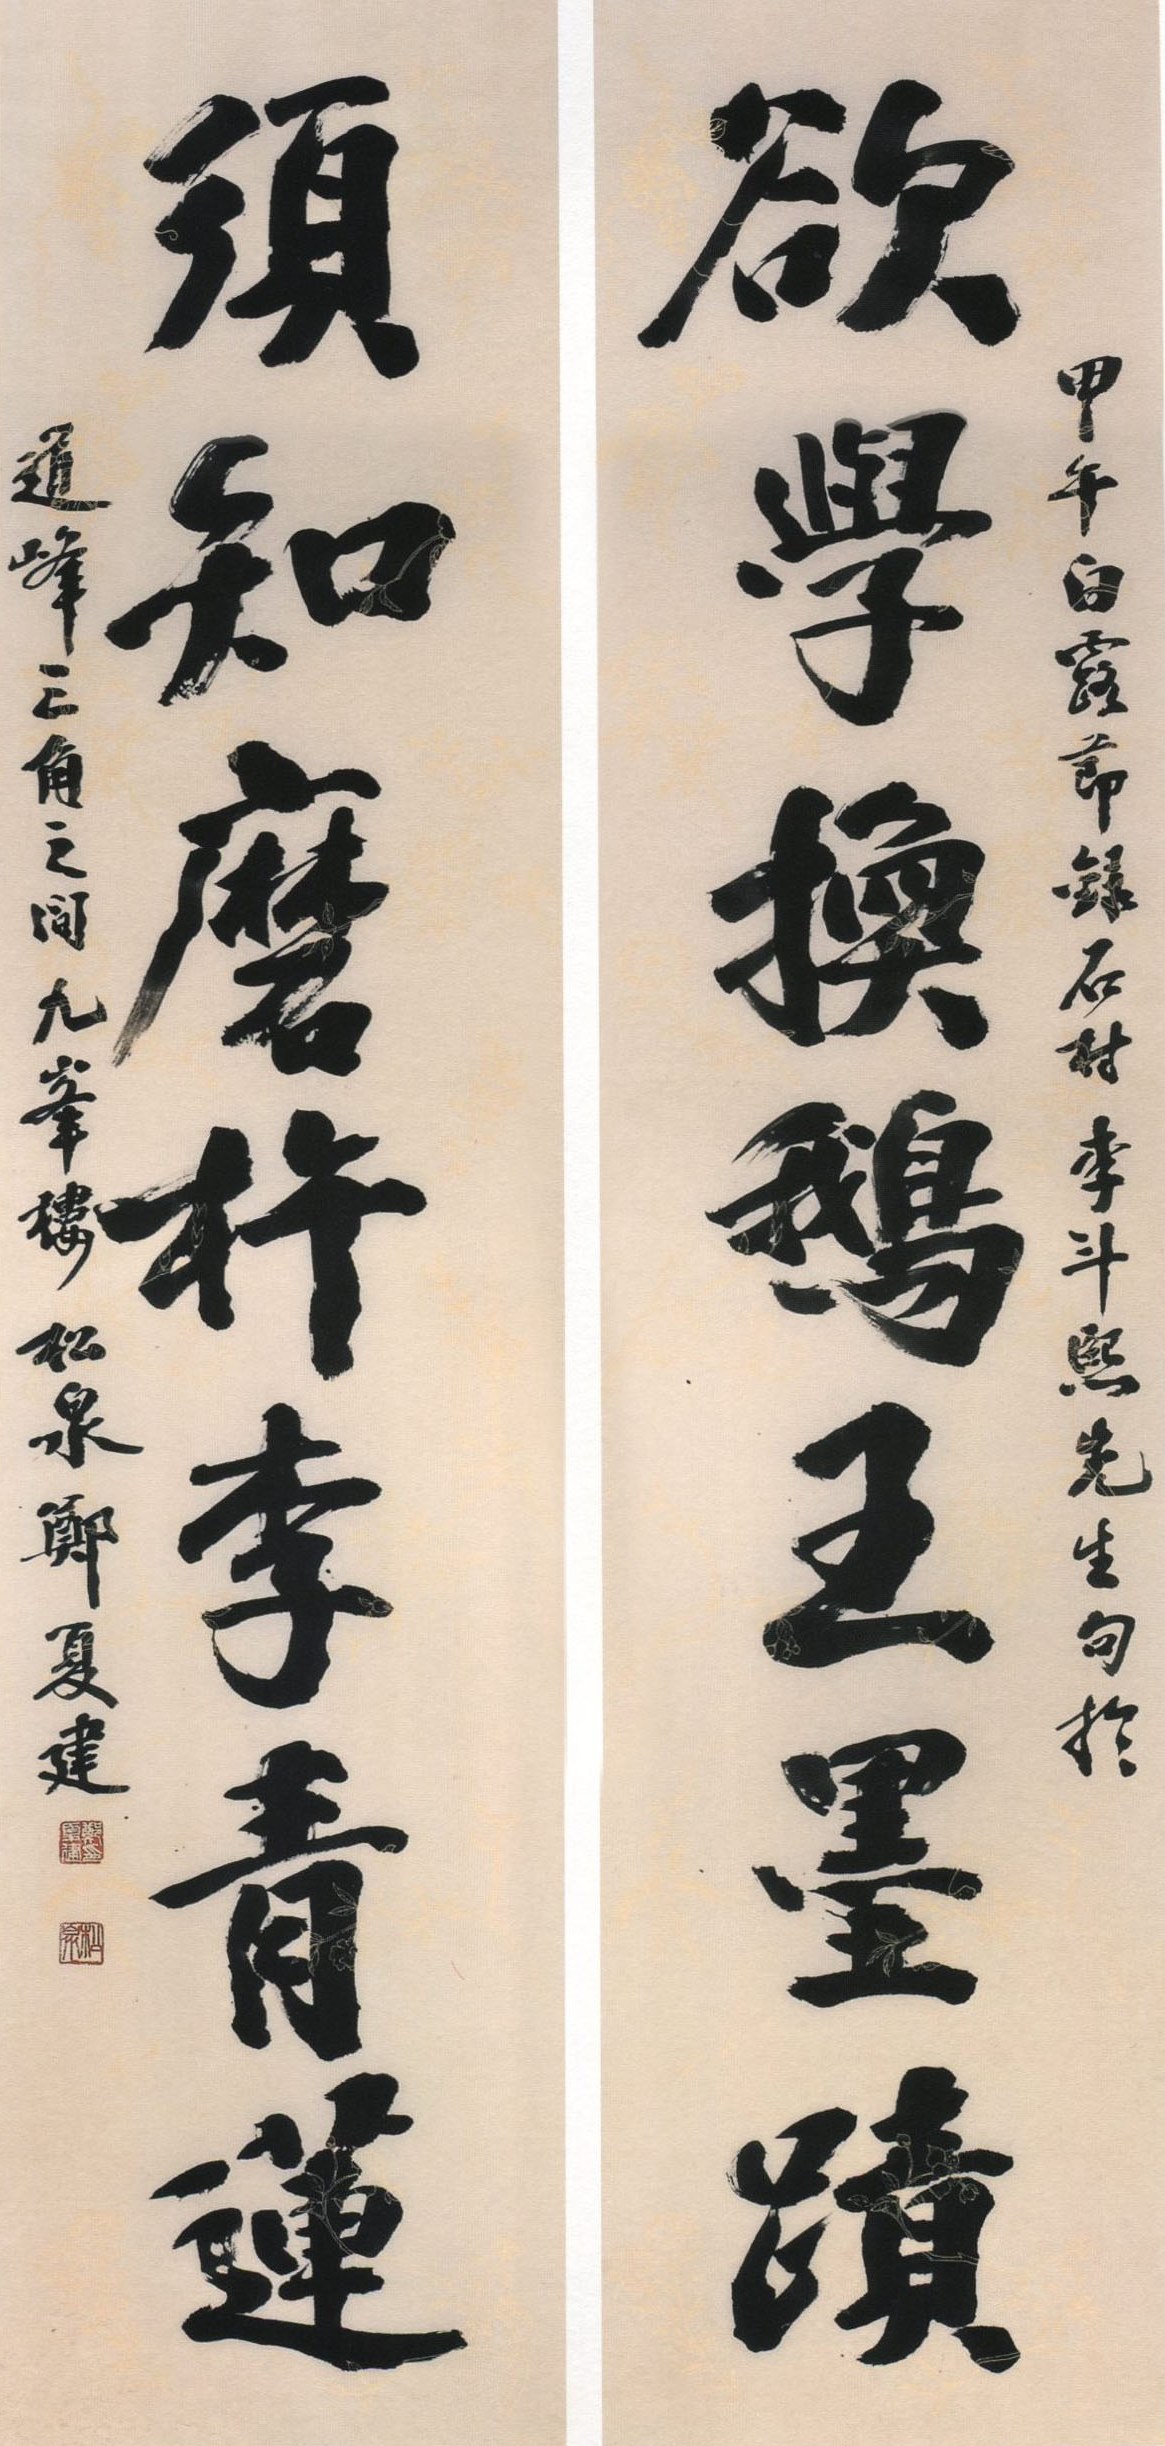 欲學換鵝王墨蹟
甲午白露節錄石村李斗熙先生句於
須知磨杵李青蓮
道峰三角之間九峯樓松泉鄭夏建
鄭夏建印
松泉